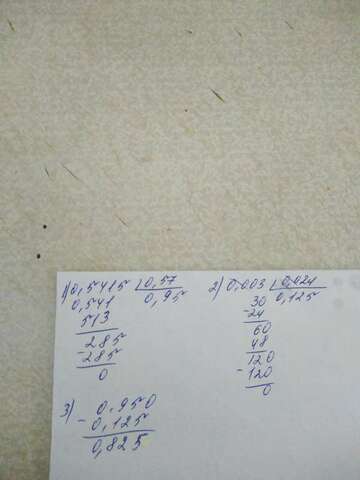 1) 0,5415 | 0,57
0,541 0,95
513
- 285
- 285
0
2) 0,003 | 0,024
30 0,125
- 24
60
48
120
- 120
0
3) 0,950
- 0,125
0,825